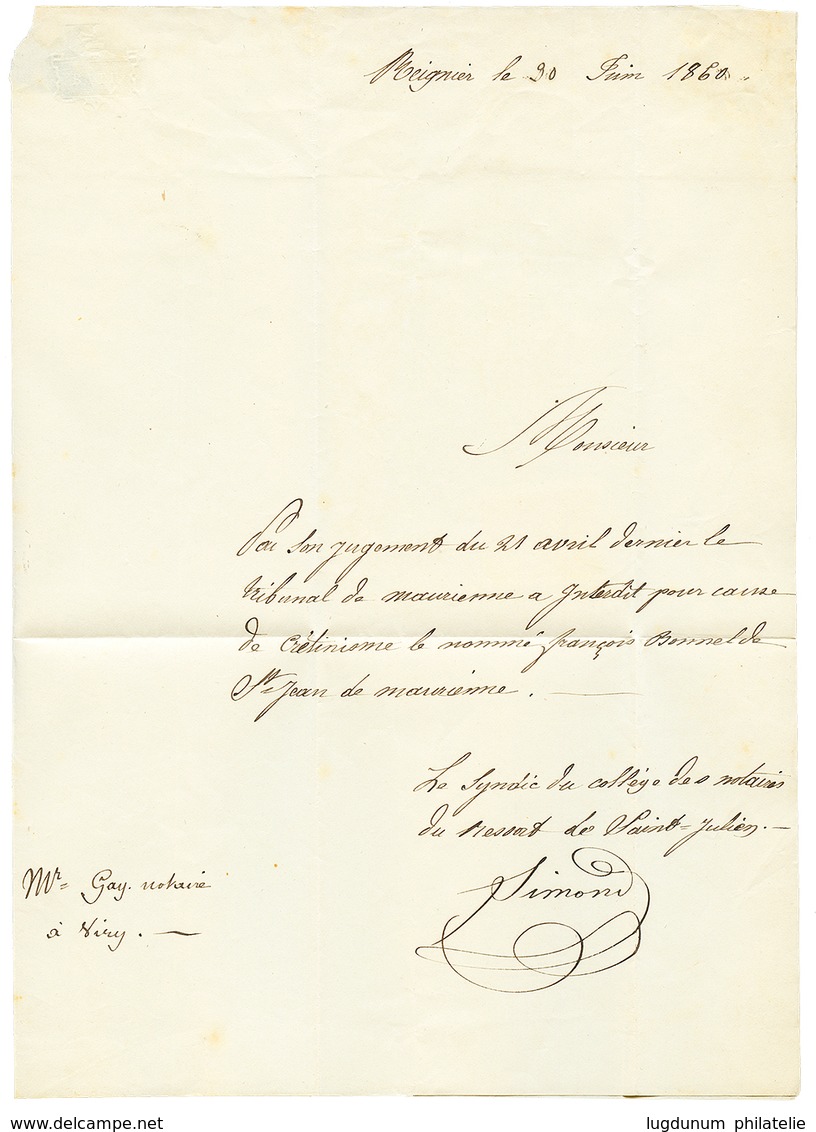 Reignier le 30 Juin 1860.
Monsieur
Par son jugement du 21 avril dernier le
tribunal de maurienne a Interdit pour cause
de Crétinisme le nommé françois Bonnel de
St Jean de maurienne.
Le Syndic du collége des notaires
du Ressort de Saint=Julien.
Simond
Mr= Gay. notaire
à Viry.
www.delcampe.net
lugdunum philatelie